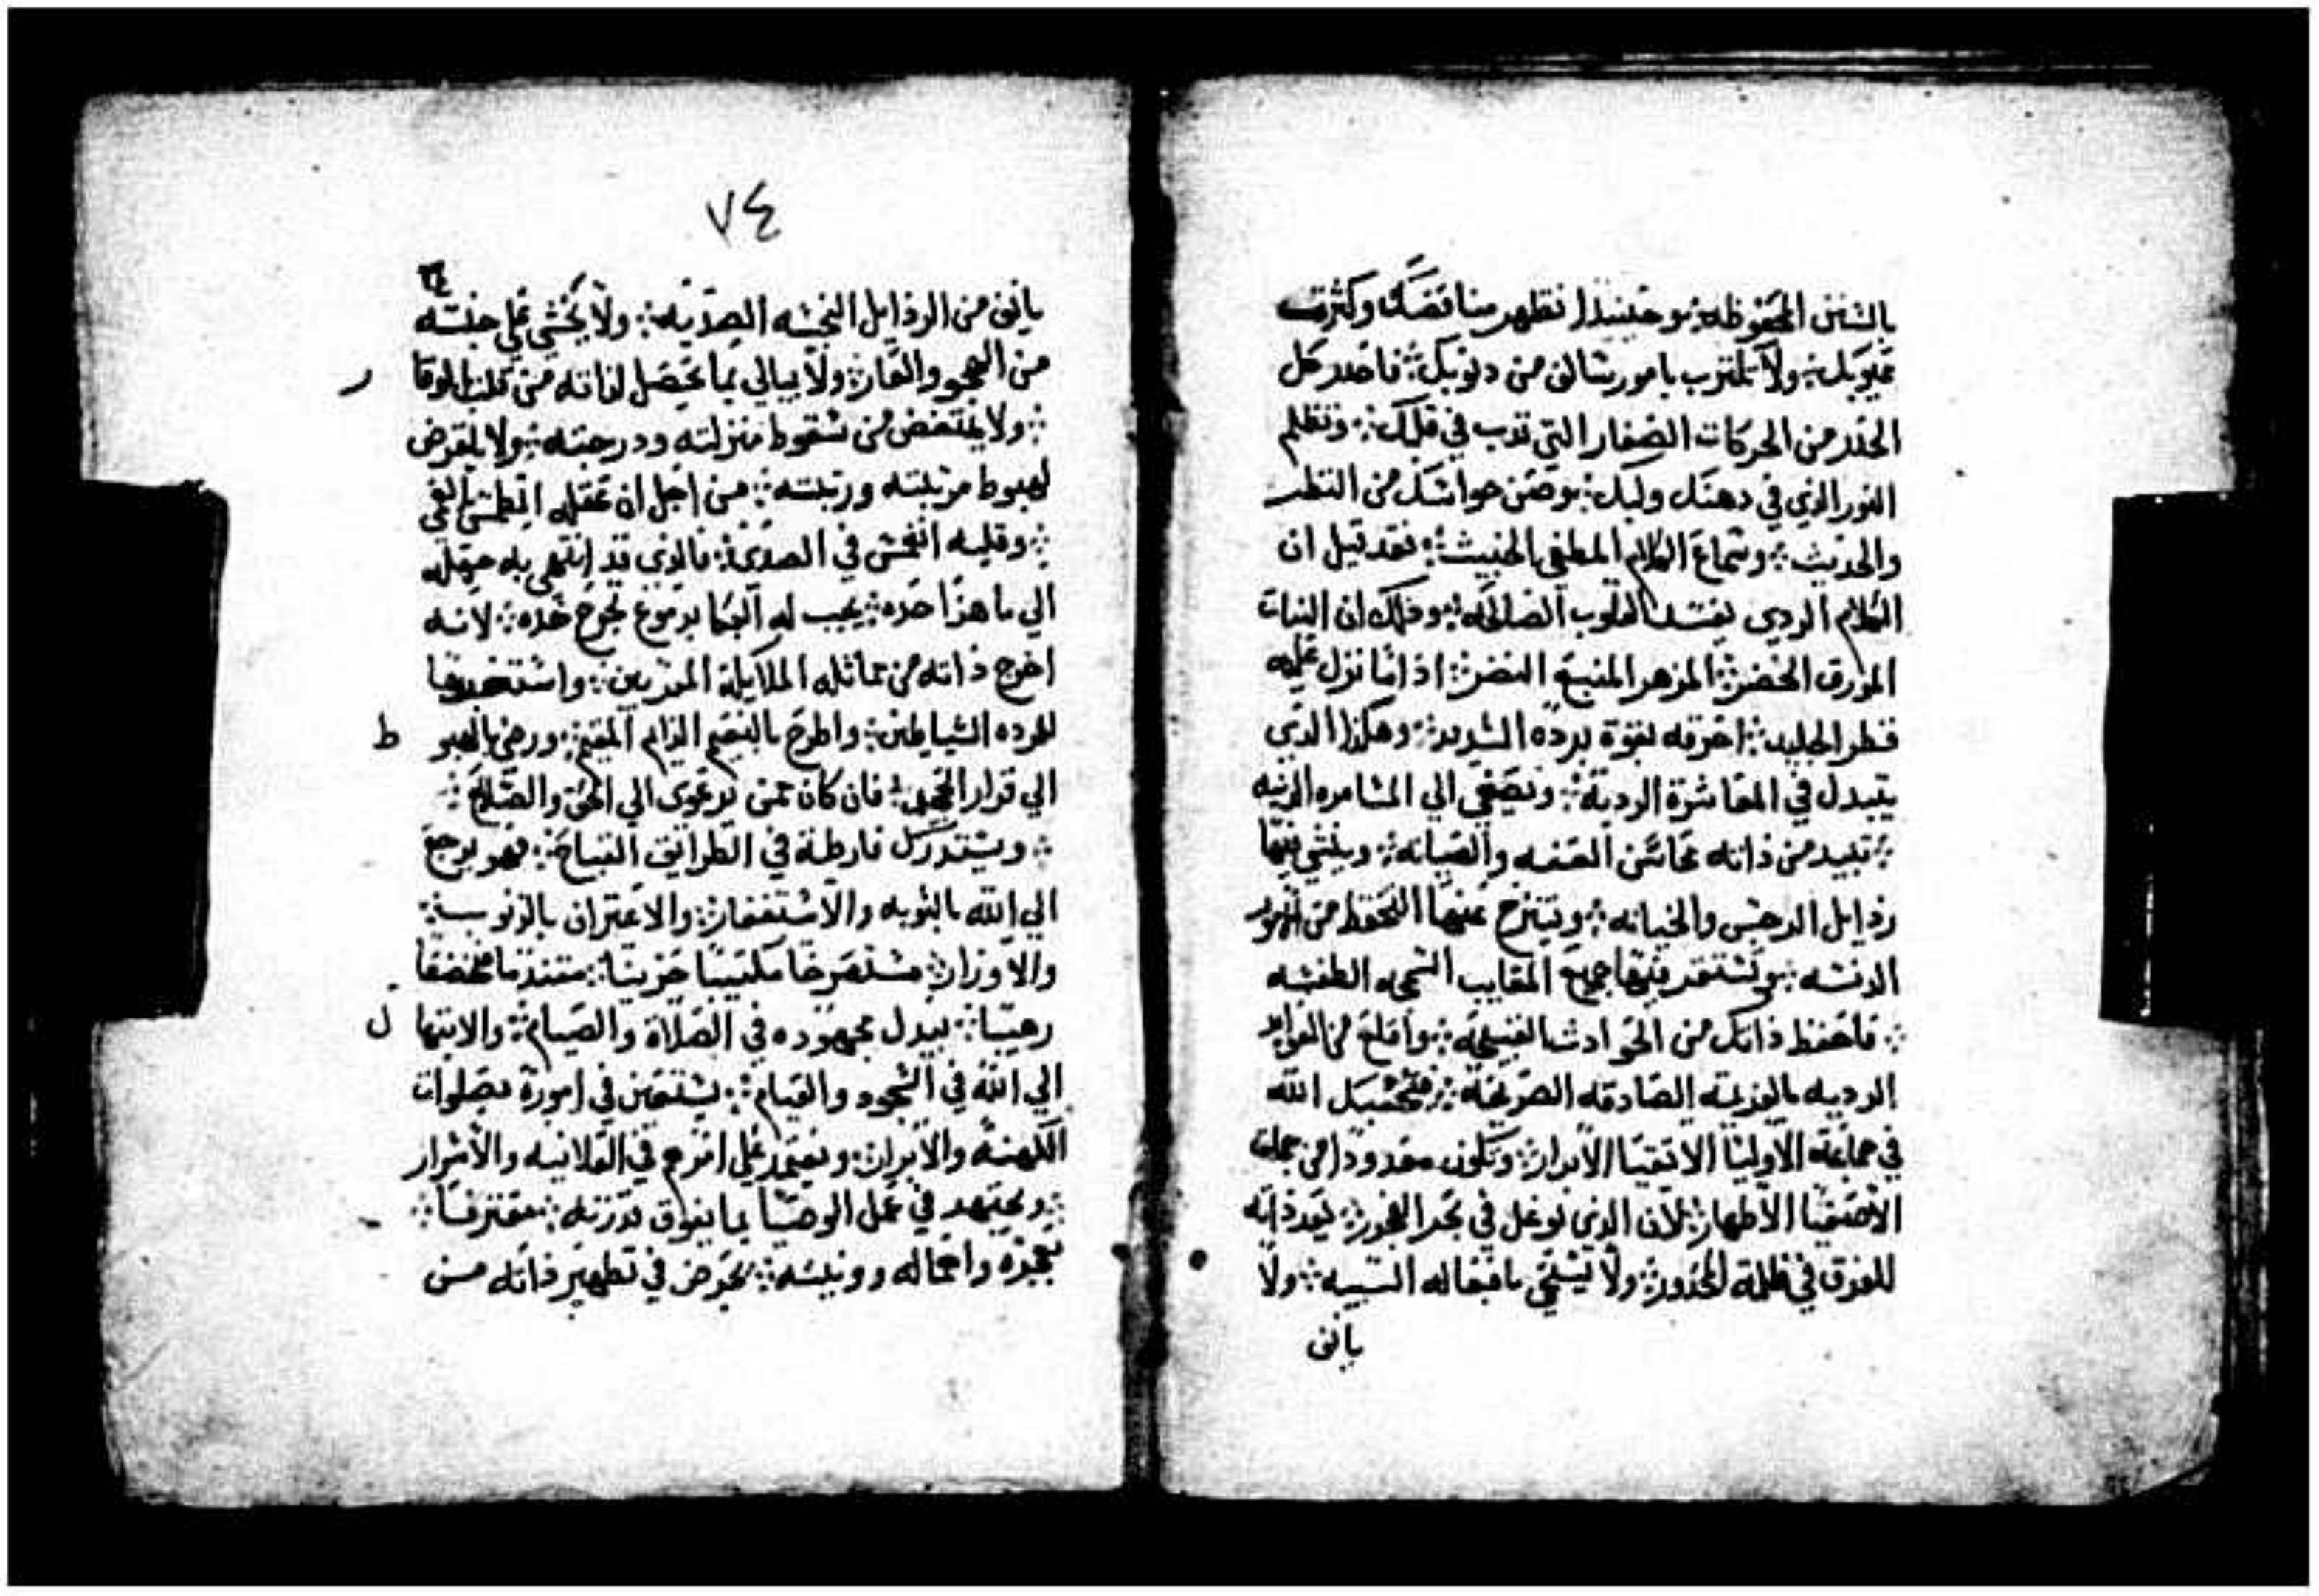 بالسنن المحفوظه ∴ وحينيذا تظهر مناقصك وكثرت
عيوبك ∴ ولا تلتزب بامور يشالن من دنوبك ∴ فاحدر كل
الحدر من الحركات الصغار التي تدب في قلبك ∴ وتظلم
النور الذي في دهنك ولبك ∴ وصن حواسك من النظر
والحديث ∴ وسماع الكلام المطغي الخبيث ∴ فقد قيل ان
الكلام الردي يفسد القلوب الصالحه ∴ ودلك ان النبات
المورق الخضر ∴ المزهر المنبع النضر ∴ اذ اما نزل عليه
قطر الجليد ∴ احرقه بقوة برده الشديد ∴ وهكذا الذي
يتبدل في المعاشرة الردية ∴ ويصغي الي المسامره الدنيه
∴ تبيد من ذاته محاسن العفه والصيانه ∴ وينشي فيها
رذايل الدجس والخيانه ∴ وينتزح عنها التحفظ من امور
الدنسه ∴ وتستقر فيها جميع المعايب السمجه الطفسه
∴ فاحفظ ذاتك من الحوادث القبيحة ∴ واقلع من العوايد
الرديه بالعزيمة الصادقه الصريحة ∴ فتحسبك الله
في جماعة الاوليا الاتقيا الابرار ∴ وتكون معدودا من جملة
الاصفيا الاطهار ∴ لان الذي توغل في بحر الفجور ∴ يعد ذاته
للغرق في ظلمة الخدور ∴ ولا يستحي بافعاله السيه ∴ ولا
يانف
٧٤
يانف من الرذايل النجسه الصديه ∴ ولا يخشي علي جنسه
من الهجو والعار ∴ ولا يبالي بما يحصل لذاته من قلة الوقار
∴ ولا يمتعض من سقوط منزلته ودرجته ∴ ولا يلقرض
لهبوط مرتبته ورتبته ∴ من اجل ان عقله انطمس بالغي
∴ وقلبه انغمس في الصدي ∴ فالذي قد انتهي به جهله
الي ما هذا حده ∴ يجب له البكا بدموع تجرح خده ∴ لانه
اخرج ذاته من مماثله الملايكة المقربين ∴ واستخدمها
للمرده الشياطين ∴ واطرح بالنعيم الدايم المقيم ∴ ورضي بالهبوط
الي قرار الجحيم ∴ فان كان ممن يرعوي الي الحق والصلاح ∴
∴ ويستدرك فارطه في الطرايق القباح ∴ فهو يرجع
الي الله بالتوبه والاستغفار ∴ والاعتراف بالذنوب ∴
والاوزار ∴ مستصرخا مكتيبا حزينا ∴ متندما مخضعا
رهيبا ∴ يبدل مجهوده في الصلاة والصيام ∴ والابتهال
الي الله في السجود والقيام ∴ يستعين في امورة بصلوات
الكهنه والابرار ∴ ويعتمد علي اوامرهم في العلانيه والاسرار
∴ ويجتهد في عمل الوصيا بما يفوق قدرته ∴ معترفا ∴
بعجزه واهماله وونيته ∴ يحرض في تطهير ذاته من